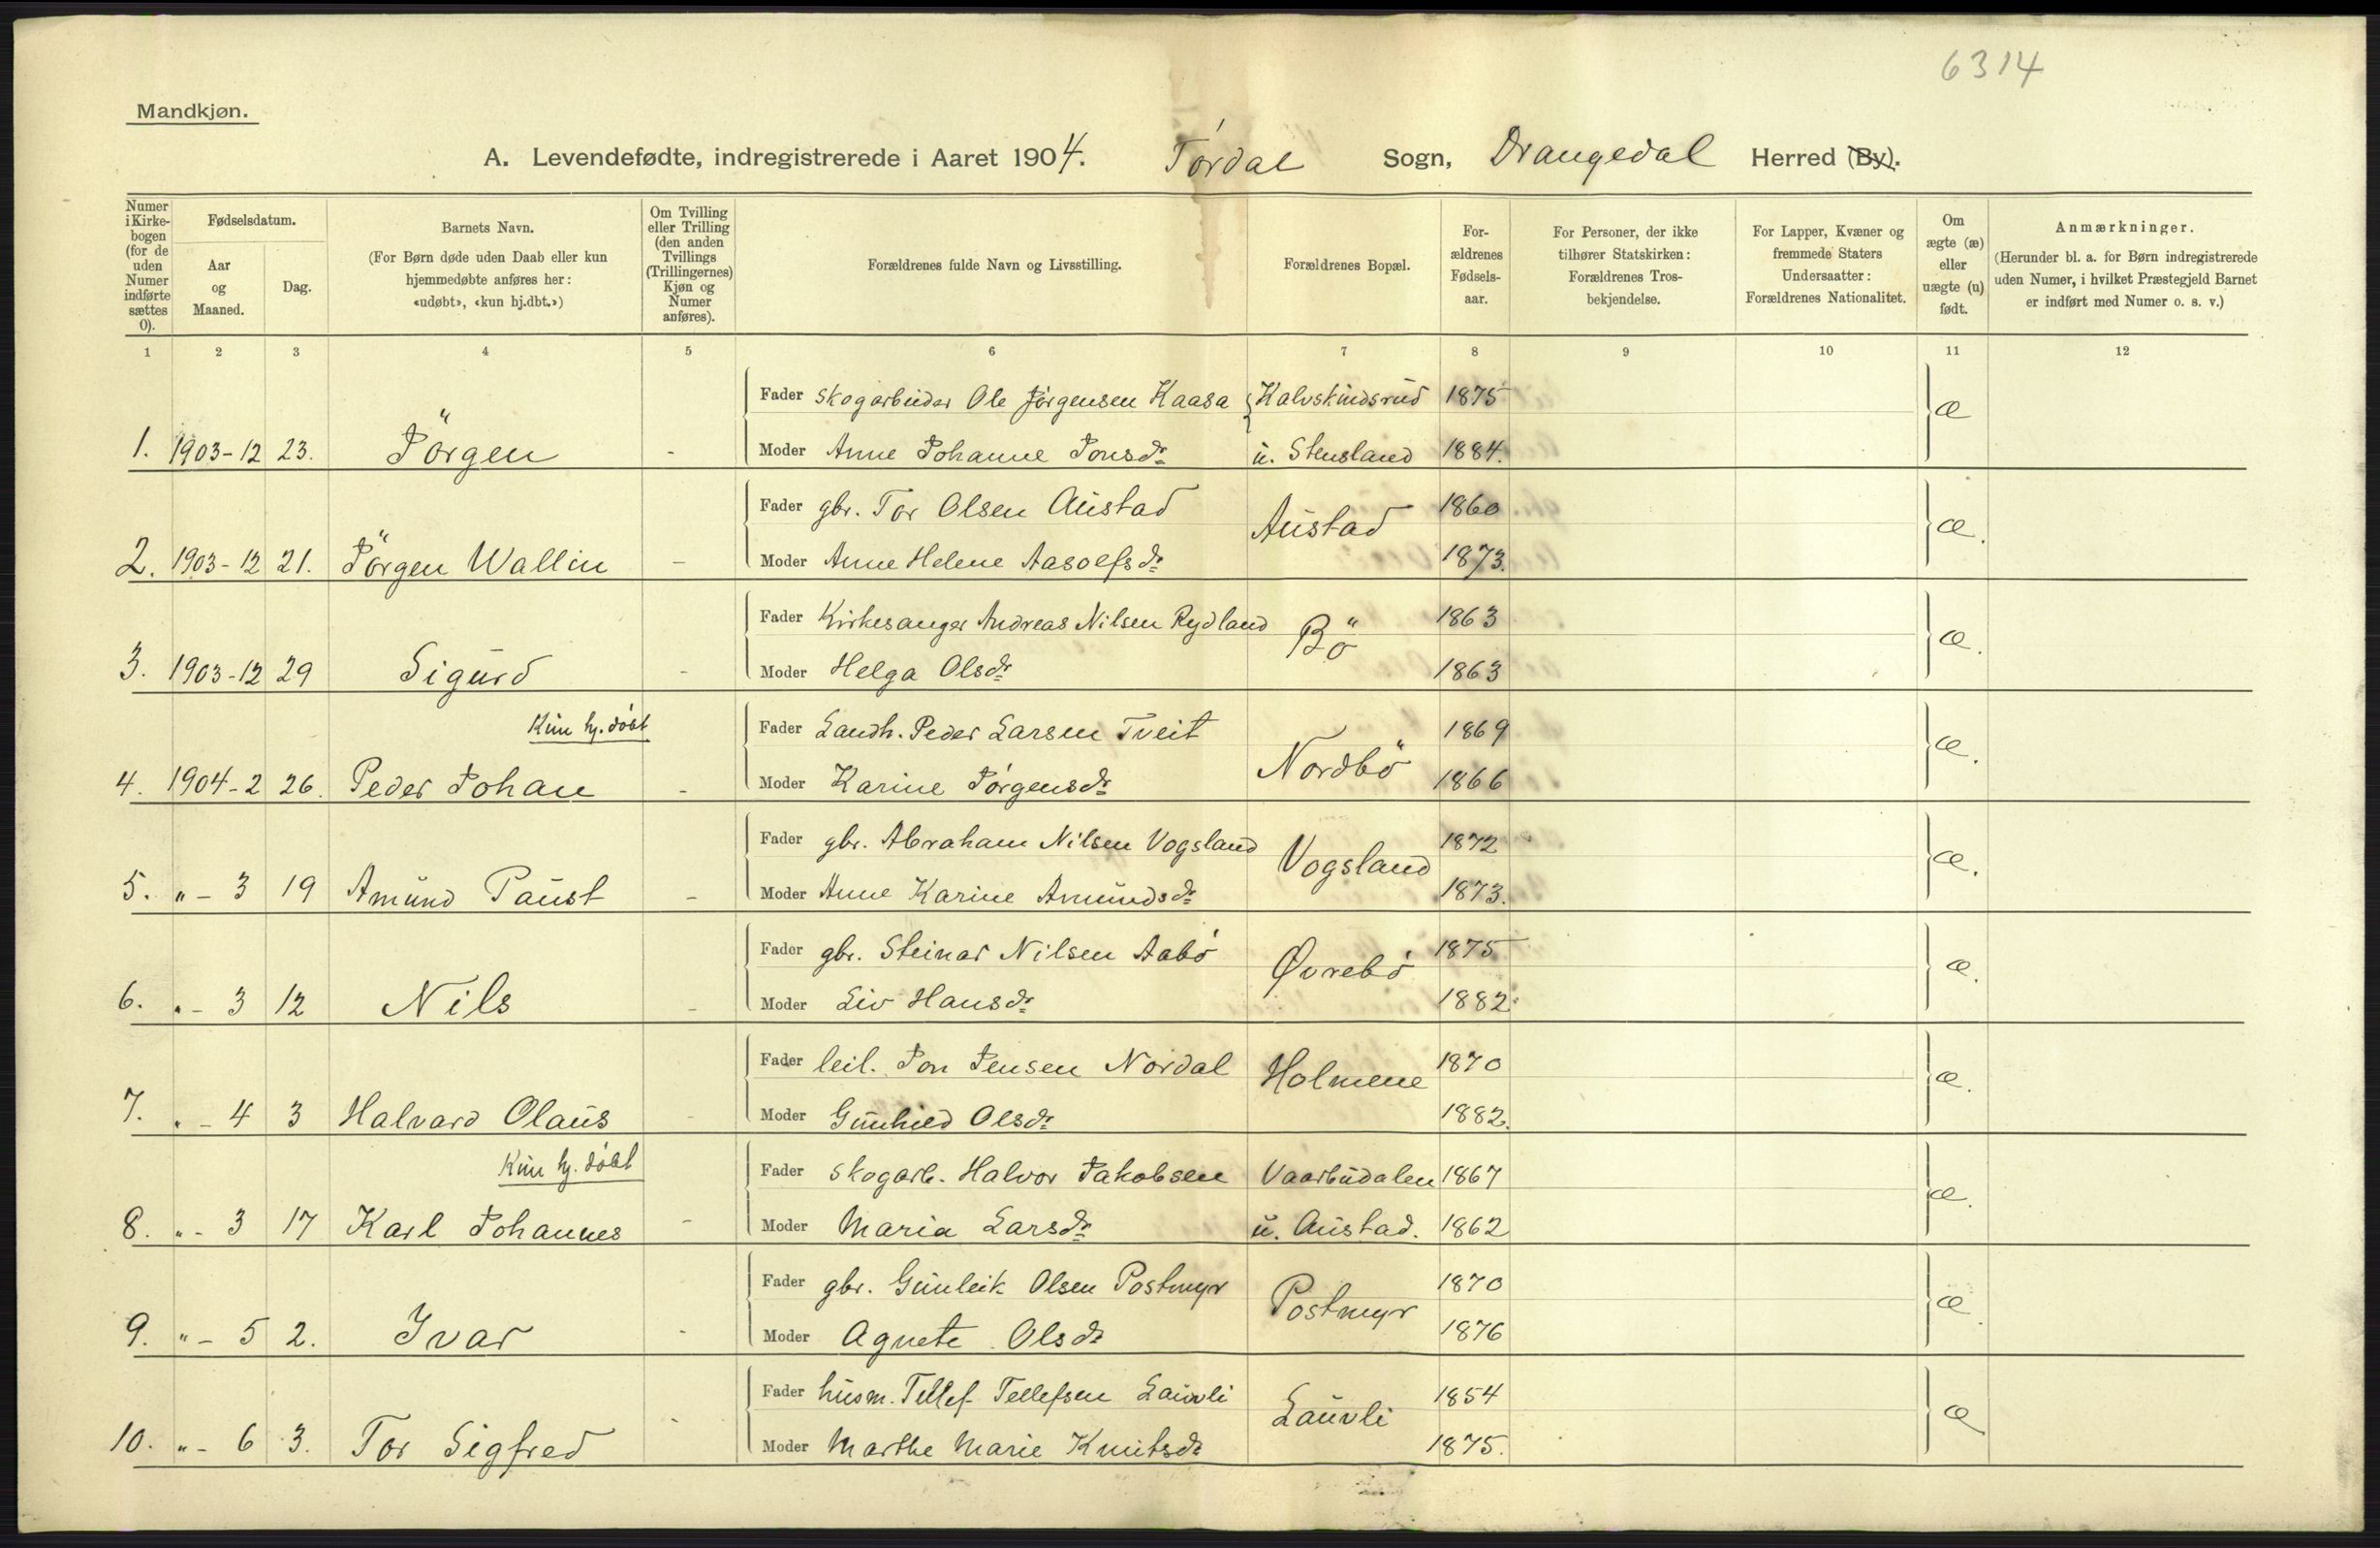 6314
Mandkjøn.
A. Levendefødte, indregistrerede i Aaret 1904. Tórdal Sogn, Drangedal Herred (By).
Numer i Kirkebogen (for de uden Numer indførte sættes 0).
Fødselsdatum.
Aar og Maaned.
Dag.
Barnets Navn.
(For Børn døde uden Daab eller kun hjemmedøbte anføres her: «udøbt», «kun hj.dbt.»)
Om Tvilling eller Trilling (den anden Tvillings (Trillingernes) Kjøn og Numer anføres).
Forældrenes fulde Navn og Livsstilling.
Forældrenes Bopæl.
Forældrenes Fødselsaar.
For Personer, der ikke tilhører Statskirken: Forældrenes Trosbekjendelse.
For Lapper, Kvæner og fremmede Staters Undersaatter: Forældrenes Nationalitet.
Om ægte (æ) eller uægte (u) født.
Anmærkninger.
(Herunder bl. a. for Børn indregistrerede uden Numer, i hvilket Præstegjeld Barnet er indført med Numer o. s. v.)
1 2 3 4 5 6 7 8 9 10 11 12
Fader Skogarbeider Ole Jörgensen Kaasa Kalvskindsrud 1875 æ
1. 1903-12 23. Jörgen - Moder Anne Johanne Jonsdr u. Stensland 1884.
Fader gbr. Tor Olsen Austad Austad 1860 æ.
2. 1903-12 21. Jörgen Wallin - Moder Anne Helene Aasolfsdr 1873.
Fader Kirkesanger Andreas Nilsen Rydland Bö 1863 æ.
3. 1903-12 29 Sigurd - Moder Helga Olsdr 1863
Kun hj. döbt Fader Landh. Peder Larsen Tveit Nordbö 1869 æ.
4. 1904-2 26. Peder Johan - Moder Karine Jörgensdr 1866
Fader gbr. Abraham Nilsen Vogsland Vogsland 1872 æ.
5. " - 3 19 Amund Paust - Moder Anne Karine Amundsdr 1873.
Fader gbr. Steinar Nilsen Aabó Øvrebó 1875 æ.
6. " - 3 12 Nils - Moder Liv Hansdr 1882.
Fader leil. Jon Jensen Nordal Holmene 1870 æ.
7. " - 4 3 Halvard Olaus - Moder Gunhild Olsdr 1882.
Kun hj. döbt Fader Skogarb. Halvor Jakobsen Vaarbudalen 1867 æ.
8. " - 3 17 Karl Johannes - Moder Maria Larsdr u. Austad. 1862
Fader gbr. Gunleik Olsen Postmyr Postmyr 1870 æ.
9. " - 5 2. Ivar - Moder Agnete Olsdr 1876
Fader husm. Tellef Tellefsen Lauvli Lauvli 1854 æ
10. " - 6 3. Tor Sigfred - Moder Marthe Marie Knutsdr 1875.